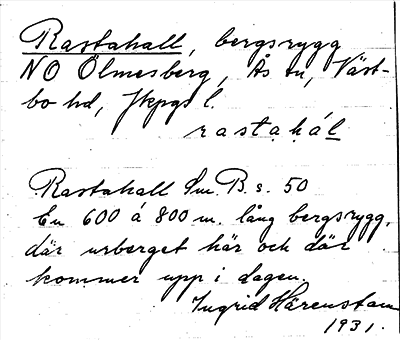 Rastahall, bergsrygg
NO Ölmesberg, Ås sn, Väst-
bo hd, Jkpgs l.
rastahál
Rastahall Sm. B. s. 50
En 600 à 800 m. lång bergsrygg,
där urberget här och där
kommer upp i dagen.
Ingrid Härenstam
1931.